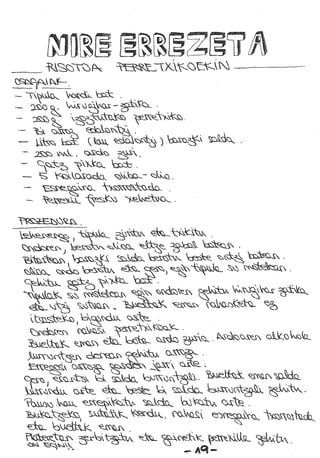 NIRE ERREZETA
RISOTOA PERRETXIKOEKIN
OSAGAIAK
- Tipula handi bat.
- 200 g. hirugihar-zatiba.
- 200 g. izoztutako perretxiko.
- Bi arroz edalontzi.
- Litro bat (lau edalontzi) barazki salda.
- 200 ml. ardo zuri.
- Gatz pixka bat.
- 5 koilarada oliba-olio.
- Esnegaina txorrostada.
- Perrexil fresku xehetua.
PROZEDURA
Lehenengo, tipula zuritu eta txikitu.
Ondoren, berotu olioa eltze zabal batean.
Bitartean, barazki salda berotu beste ontzi batean.
Olioa ondo berotu eta gero, egin tipula su motelean.
Gehitu gatz pixka bat.
Tipulak su motelean egin ondoren gehitu hirugihar zatika
eta utzi sutan. Bueltak eman nahasketa ez
itsasteko, bigundu arte.
Ondoren nahasi perretxikoak.
Bueltak eman eta bota ardo zuria. Ardoaren alkohola
lurruntzen denean gehitu arroza.
Erregosi arroza garden jarri arte.
Gero, erantsi bi salda burruntzali. Bueltak eman salda
lurrundu arte eta beste bi salda burruntzali gehitu.
Pausu hau errepikatu salda bukatu arte.
Bukatzeko, sutatik kendu, nahasi esnegaina txorrostada
eta bueltak eman.
Plateretan zerbitzatu eta gainetik perrexila gehitu.
ON EGIN!!
- 19 -